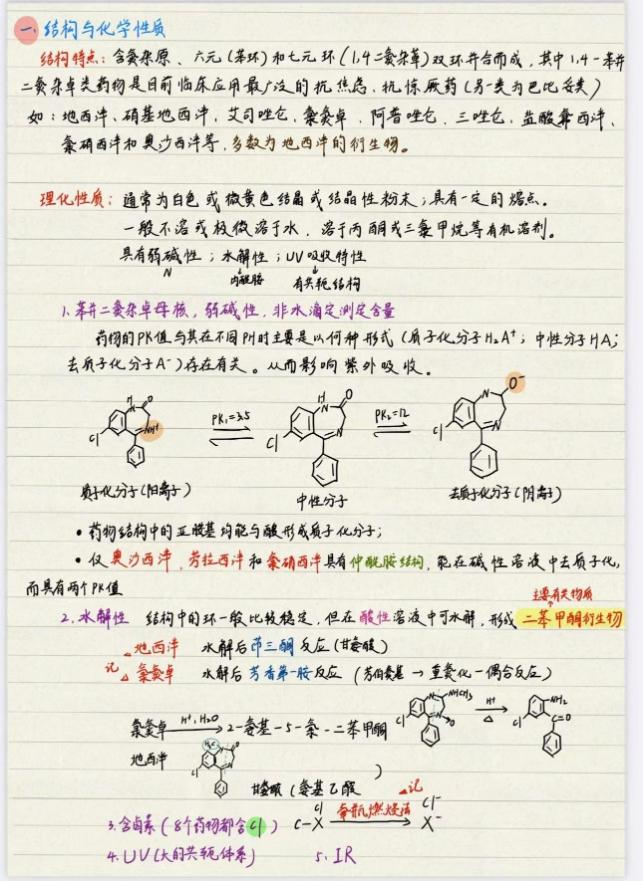 一、结构与化学性质
结构特点：含氮杂原、六元(苯环)和七元环(1,4二氮杂䓬)双环并合而成，其中1,4-苯并
二氮杂卓类药物是目前临床应用最广泛的抗焦虑、抗惊厥药(另一类为巴比妥类)
如：地西泮、硝基地西泮、艾司唑仑、氯氮卓、阿普唑仑、三唑仑、盐酸氟西泮、
氯硝西泮和奥沙西泮等，多数为地西泮的衍生物。
理化性质：通常为白色或微黄色结晶或结晶性粉末；具有一定的熔点。
一般不溶或极微溶于水，溶于丙酮或三氯甲烷等有机溶剂。
具有弱碱性；水解性；UV吸收特性
N 内酰胺 有共轭结构
1.苯并二氮杂卓母核，弱碱性，非水滴定测定含量
药物的PK值与其在不同PH时主要是以何种形式(质子化分子H₂A⁺；中性分子HA；
去质子化分子A⁻)存在有关。从而影响紫外吸收。
H N O NH⁺ Cl PK₁=3.5 H N O N Cl PK₂=12 N O⁻ N Cl
质子化分子(阳离子) 中性分子 去质子化分子(阴离子)
•药物结构中的亚胺基均能与酸形成质子化分子；
•仅奥沙西泮、劳拉西泮和氯硝西泮具有仲酰胺结构，能在碱性溶液中去质子化，
而具有两个PK值
主要有关物质
2.水解性 结构中的环一般比较稳定，但在酸性溶液中可水解，形成二苯甲酮衍生物
地西泮 水解后茚三酮反应(甘氨酸)
记 氯氮卓 水解后芳香第一胺反应(芳伯氨基→重氮化-偶合反应)
氯氮卓 H⁺,H₂O 2-氨基-5-氯-二苯甲酮 N NHCH₃ N O Cl H⁺ △ NH₂ C=O Cl
地西泮 H₃C N O N Cl
甘氨酸(氨基乙酸)
3.含卤素(8个药物都含Cl) Cl C-X 氧瓶燃烧法 记 Cl⁻ X⁻
4.UV(大的共轭体系) 5.IR